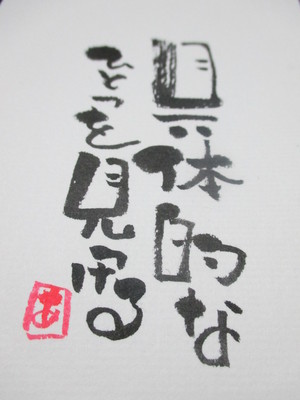 具体的な
ひとつを見る
あ